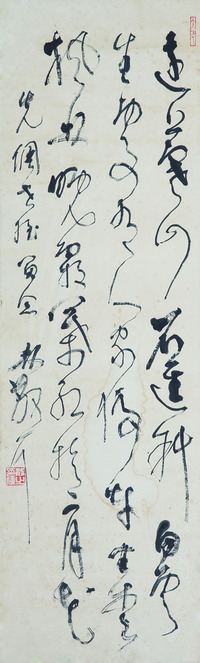 遠上寒山石徑斜白雲
生處有人家停車坐愛
楓林晚霜葉紅於二月花
先 林散耳